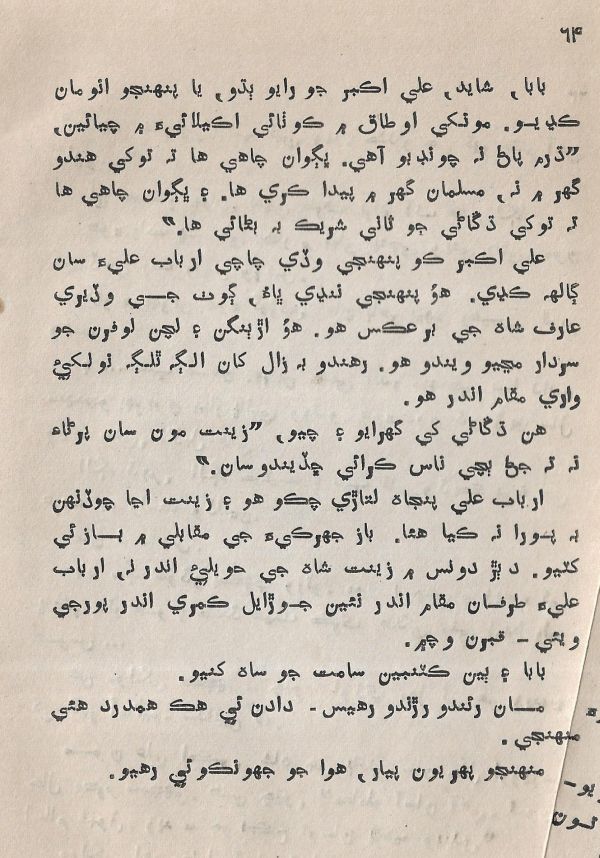 ٦۴
بابا, شايد, علي اکبر جو رايو ٻڌو, يا پنهنجو انومان
ڪڍيو. مونکي اوطاق ۾ ڪوٺائي اڪيلائيءَ ۾ چيائين,
”ڌرم پاڻ نہ چونڊبو آهي. ڀڳوان چاهي ها تہ توکي هندو
گهر ۾ نہ, مسلمان گهر ۾ پيدا ڪري ها. ۽ ڀڳوان چاهي ها
تہ توکي ڌڱاڻي جو ثاني شريڪ بہ بڻائي ها.“
علي اکبر کو پنهنجي وڏي چاچي ارباب عليءَ سان
ڳالهہ ڪڍي. هوُ پنهنجي ننڍي ڀاءُ, ڳوٺ جي وڏيري
عارف شاهہ جي برعڪس هو. هوُ اڙٻنگن ۽ لڄن لوفرن جو
سردار مڃيو ويندو هو. رهندو بہ زال کان الڳہ ٿلڳہ نولکيُ
واري مقام اندر هو.
هن ڌڱاڻي کي گهرايو ۽ چيو, ”زينت مون سان پرڻاءِ
نہ تہ جڻ ٻچي ناس ڪرائي ڇڏيندوسان.“
ارباب علي پنجاهہ لتاڙي چڪو هو ۽ زينت اڃا چوڏنهن
بہ پورا نہ ڪيا هئا. باز جهرڪيءَ جي مقابلي ۾ بازئي
کٽيو. دٻڙ دونس ۾ زينت شاهہ جي حويليُ اندر نہ, ارباب
عليءَ طرفان مقام اندر نئين جوڙايل ڪمري اندر پورجي
ويئي - قبرن وچ ۾.
بابا ۽ ٻين ڪٽنبين سامت جو ساهہ کنيو.
مان رئندو رڙندو رهيس - دادن ئي هڪ همدرد هئي
منهنجي.
منهنجو پهريون پيار, هوا جو جهونڪو ئي رهيو.